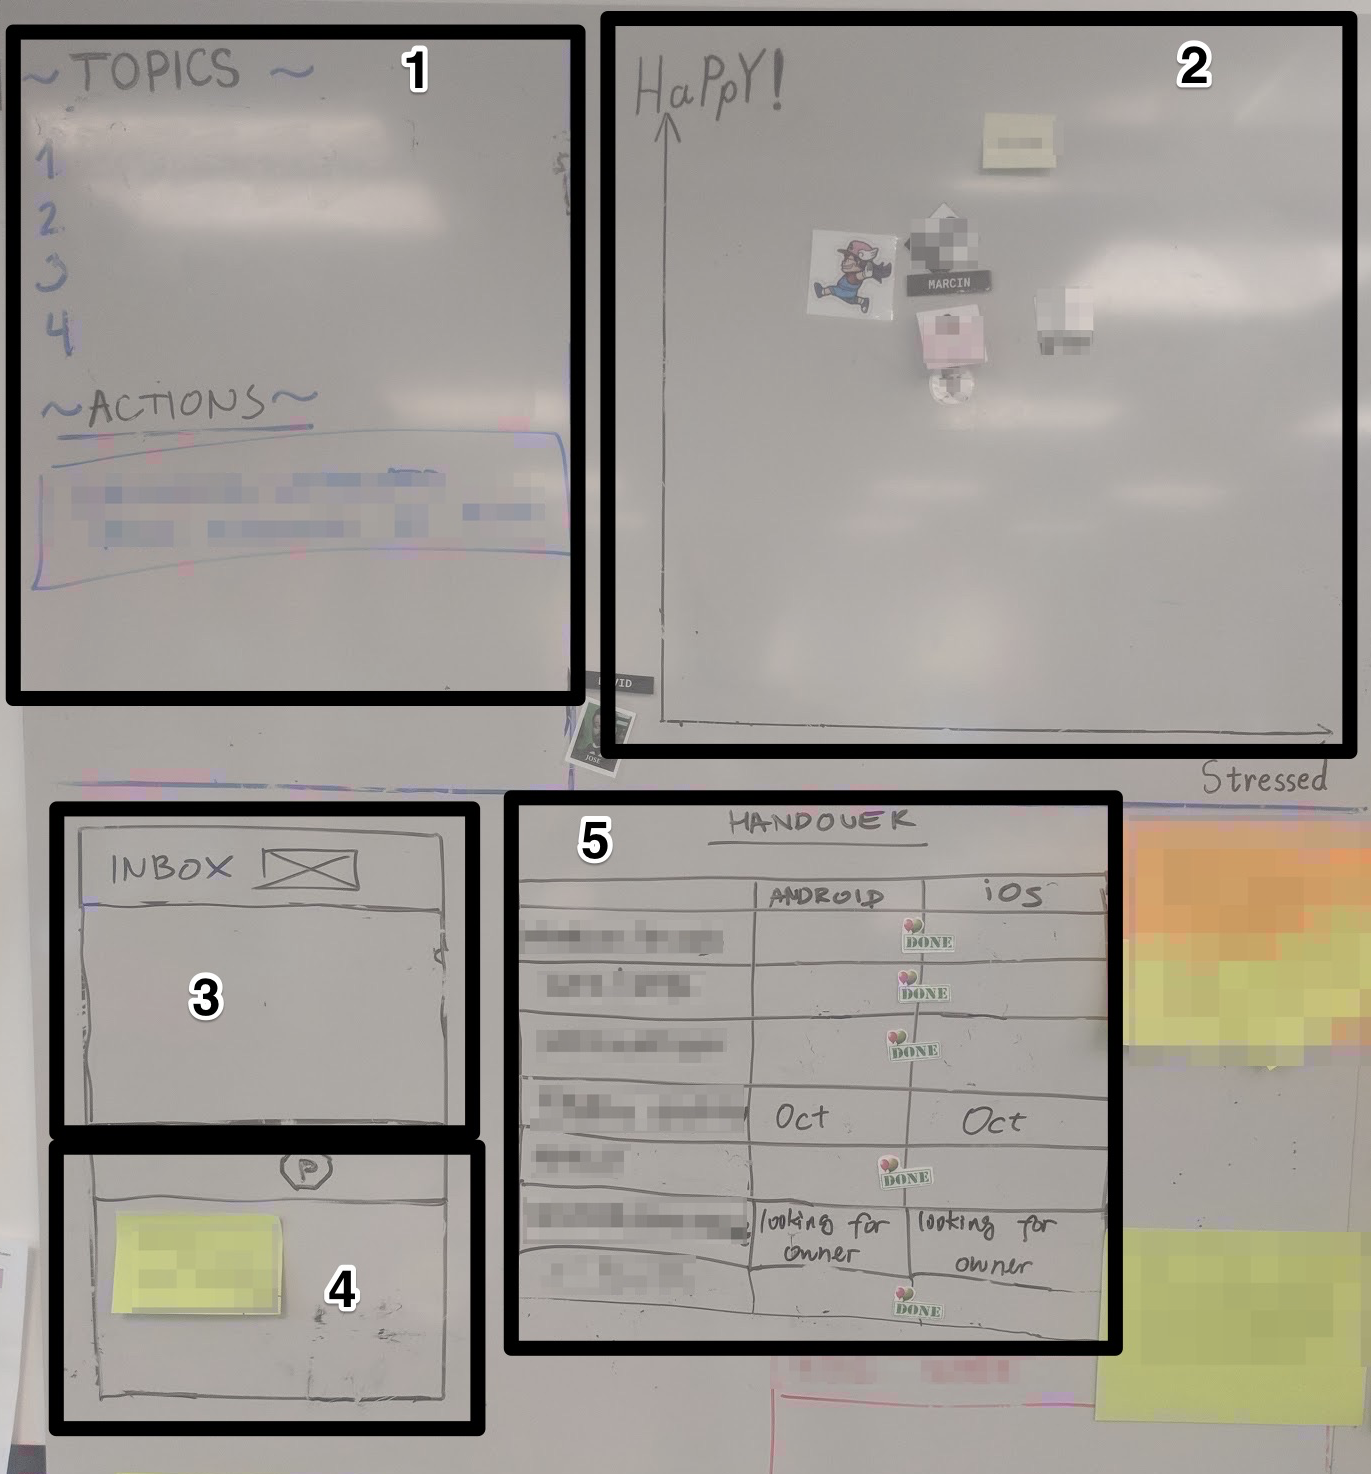 ~ TOPICS ~
1
1
2
3
4
~ ACTIONS ~
2
HaPpY!
MARCIN
JOSE
Stressed
3
INBOX
4
P
5
HANDOVER
ANDROID iOS
DONE
DONE
DONE
Oct Oct
DONE
looking for looking for
owner owner
DONE